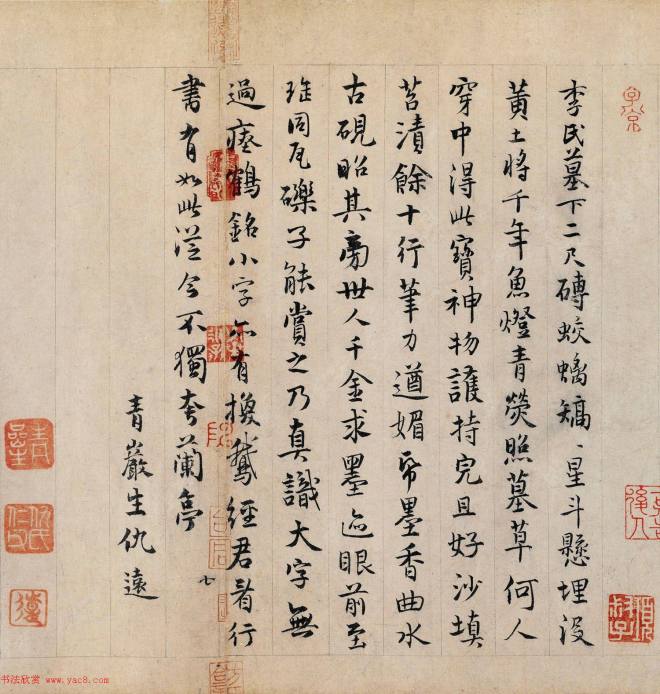 李氏墓下二尺磚蛟螭矯、星斗懸埋没
黄土將千年魚燈青熒照墓草何人
穿中得此寶神物護持完且好沙填
苔漬餘十行筆力遒媚帋墨香曲水
古硯昭其旁世人千金求墨迹眼前至
珤同瓦礫子能賞之乃真識大字無
過瘞鶴銘小字亦有換鵝經君看行
書有如此從今不獨夸蘭亭
青巖生仇遠
七
子京
仇氏仁父
书法欣赏 www.yac8.com